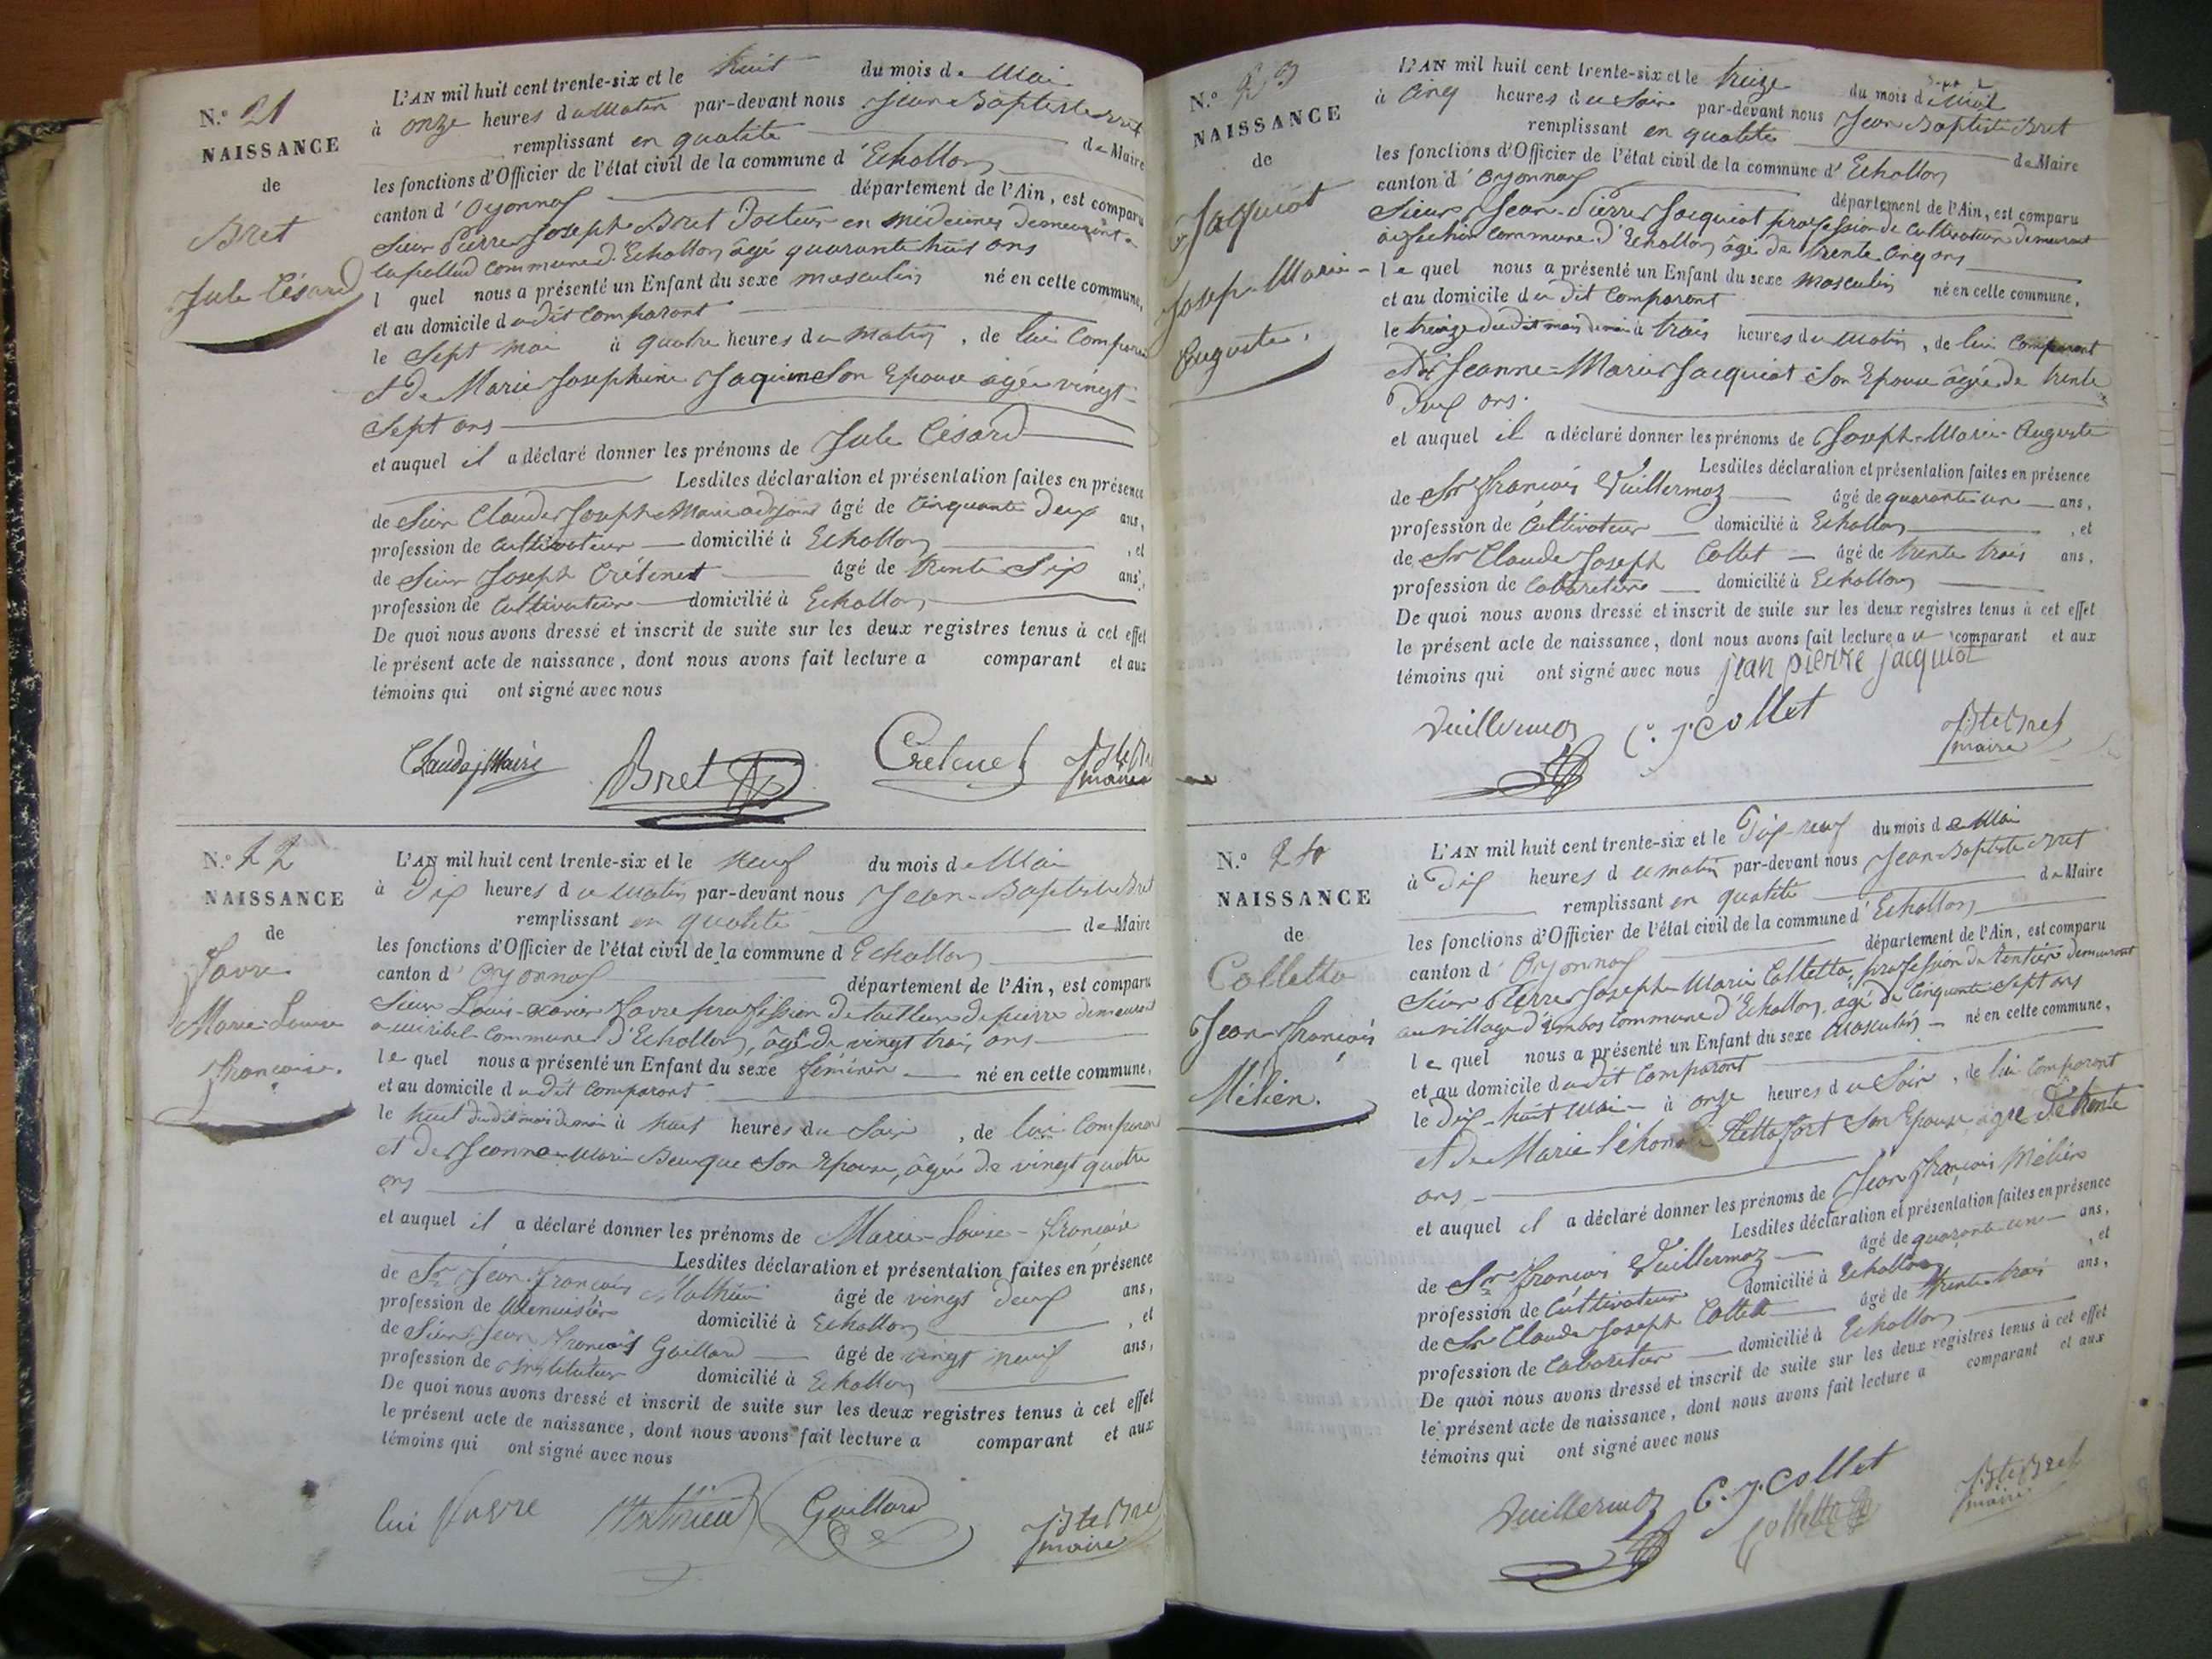 N.º 21
NAISSANCE
de
Bret
Jule Césard
L'AN mil huit cent trente-six et le huit du mois de Mai
à onze heures du Matin par-devant nous Jean Baptiste Bret
remplissant en qualité de Maire
les fonctions d'Officier de l'état civil de la commune d'Echallon
canton d'Oyonnax département de l'Ain, est comparu
Sieur Pierre Joseph Bret Docteur en médecine demeurant
commune d'Echallon âgé quarante huit ans
l quel nous a présenté un Enfant du sexe masculin né en cette commune,
et au domicile dudit Comparant
le Sept mai à quatre heures du matin, de lui Comparant
et de Marie Josephine Son Epouse âgée vingt-
Sept ans
et auquel il a déclaré donner les prénoms de Jule Césard
Lesdites déclaration et présentation faites en présence
de Sieur Claude Joseph Maire adjoint âgé de Cinquante Deux ans,
profession de Cultivateur domicilié à Echallon, et
de Sieur Joseph Crétenet âgé de trente Six ans,
profession de Cultivateur domicilié à Echallon
De quoi nous avons dressé et inscrit de suite sur les deux registres tenus à cet effet
le présent acte de naissance, dont nous avons fait lecture a comparant et aux
témoins qui ont signé avec nous
Claude j Maire Bret Cretenet J Bte Bret
maire
N.º 22
NAISSANCE
de
Favre
Marie-Louise
Françoise.
L'AN mil huit cent trente-six et le neuf du mois de Mai
à Dix heures du Matin par-devant nous Jean-Baptiste Bret
remplissant en qualité de Maire
les fonctions d'Officier de l'état civil de la commune d Echallon
canton d'Oyonnax département de l'Ain, est comparu
Sieur Louis-Xavier Favre profession de tailleur de pierre demeurant
a miribel Commune d'Echallon, âgé de vingt trois ans
le quel nous a présenté un Enfant du sexe féminin né en cette commune,
et au domicile dudit Comparant
le huit dudit mois de mai à huit heures du Soir, de lui Comparant
et de Jeanne-Marie Son Epouse, âgée de vingt quatre
ans
et auquel il a déclaré donner les prénoms de Marie-Louise-françoise
Lesdites déclaration et présentation faites en présence
de Sr Jean-François Mathieu âgé de vingt deux ans,
profession de Menuisier domicilié à Echallon, et
de Sieur Jean François Gaillard âgé de vingt neuf ans,
profession de instituteur domicilié à Echallon
De quoi nous avons dressé et inscrit de suite sur les deux registres tenus à cet effet
le présent acte de naissance, dont nous avons fait lecture a comparant et aux
témoins qui ont signé avec nous
lui Favre Mathieu Gaillard J Bte Bret
maire
N.º 23
NAISSANCE
de
Jaquiot
Joseph-Marie-
Auguste.
L'AN mil huit cent trente-six et le treize du mois de Mai
à Cinq heures du Soir par-devant nous Jean Baptiste Bret
remplissant en qualité de Maire
les fonctions d'Officier de l'état civil de la commune d'Echallon
canton d'Oyonnax département de l'Ain, est comparu
Sieur Jean-Pierre Jacquiot profession de Cultivateur demeurant
commune d'Echallon âgé de trente Cinq ans
le quel nous a présenté un Enfant du sexe Masculin né en cette commune,
et au domicile du dit Comparant
le treize dudit mois de mai à trois heures du Matin, de lui Comparant
et de Jeanne-Marie Jacquiot Son Epouse âgée de trente
Deux ans.
et auquel il a déclaré donner les prénoms de Joseph-Marie-Auguste
Lesdites déclaration et présentation faites en présence
de Sr François Vuillermoz âgé de quarante un ans,
profession de Cultivateur domicilié à Echallon, et
de Sr Claude Joseph Collet âgé de trente trois ans,
profession de Cabaretier domicilié à Echallon
De quoi nous avons dressé et inscrit de suite sur les deux registres tenus à cet effet
le présent acte de naissance, dont nous avons fait lecture au comparant et aux
témoins qui ont signé avec nous jean pierre jacquiot
Vuillermoz C. J. Collet J Bte Bret
maire
N.º 24
NAISSANCE
de
Colletta
Jean-François
Mélien.
L'AN mil huit cent trente-six et le Dix-neuf du mois de Mai
à Dix heures du matin par-devant nous Jean-Baptiste Bret
remplissant en qualité de Maire
les fonctions d'Officier de l'état civil de la commune d'Echallon
canton d'Oyonnax département de l'Ain, est comparu
Sieur Pierre Joseph Marie Colletta, profession de Rentier demeurant
au village d'Embos Commune d'Echallon, âgé de Cinquante Sept ans
le quel nous a présenté un Enfant du sexe Masculin né en cette commune,
et au domicile dudit Comparant
le Dix-huit Mai à onze heures du Soir, de lui Comparant
et de Marie Son Epouse âgée de trente
ans
et auquel il a déclaré donner les prénoms de Jean François Mélien
Lesdites déclaration et présentation faites en présence
de Sr François Vuillermoz âgé de quarante un ans,
profession de Cultivateur domicilié à Echallon, et
de Sr Claude Joseph Collet âgé de trente trois ans,
profession de Cabaretier domicilié à Echallon
De quoi nous avons dressé et inscrit de suite sur les deux registres tenus à cet effet
le présent acte de naissance, dont nous avons fait lecture a comparant et aux
témoins qui ont signé avec nous
Vuillermoz C. J. Collet J Bte Bret
Colletta maire